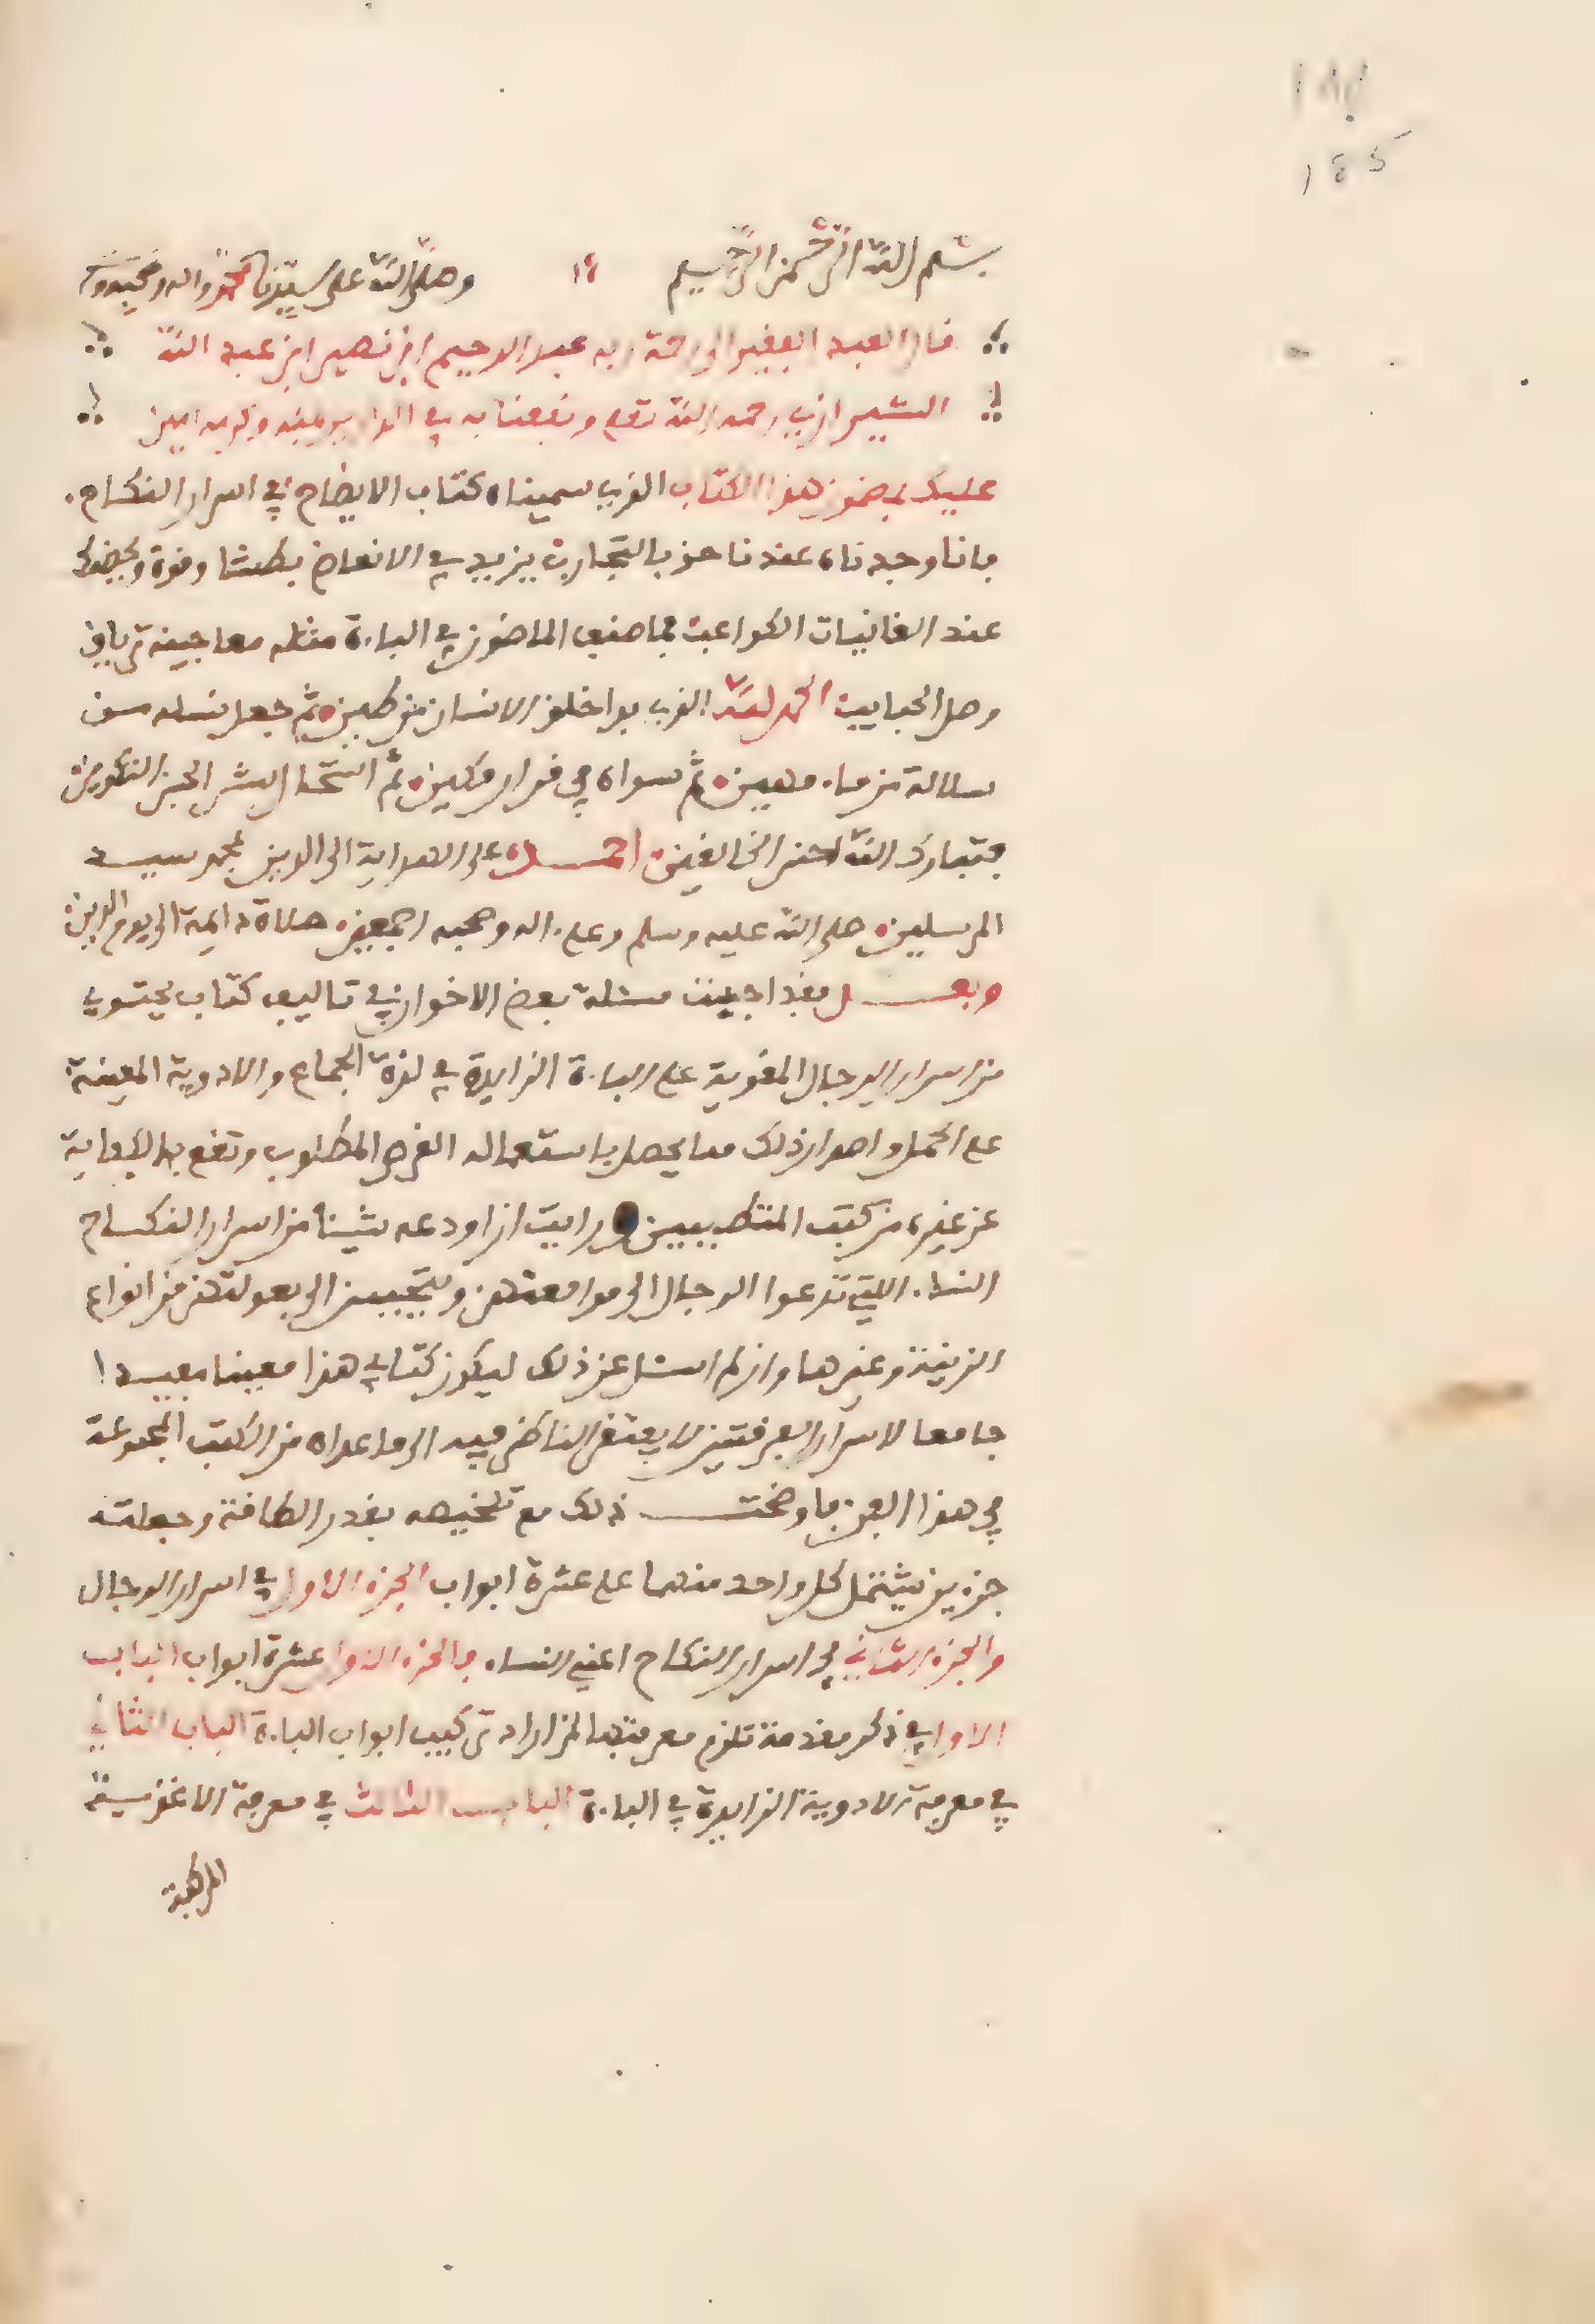 بسم الله الرحمن الرحيم وصلى الله على سيدنا محمد واله وصحبه
قال العبد الفقير الى رحمة ربه عبد الرحيم ابن نصير ابن عبد الله
الشيرازي رحمه الله تعلى ونفعنا به في الدارين بمنه وكرمه امين
عليك بمضمون هذا الكتاب الذي سميناه كتاب الايضاح في اسرار النكاح
فانا وجدناه عندنا حقا بالتجارب يزيد في الانعاض بطشا وقوة ويحضك
عند الغانيات الكواعب فما صنف الماضون في الباءة مثله معاجينه ترياق
وصل الحبايب الحمد لله الذي بدا خلق الانسان من طين ثم جعل نسله من
سلالة من ماء مهين ثم سواه في قرار مكين ثم استحال البشر الحيز التكوين
فتبارك الله احسن الخالقين احمده على الهداية الى الدين بمحمد سيد
المرسلين صلى الله عليه وسلم وعلى ءاله وصحبه اجمعين صلاة دايمة الى يوم الدين
وبعد فقد اجبت مسئلة بعض الاخوان في تاليف كتاب يحتوي
من اسرار الرجال المقوية على الباءة الزايدة في لذة الجماع والادوية المعينة
على الحمل واصول ذلك مما يحصل باستعماله الغرض المطلوب وتقع به الكفاية
عن غيره من كتب المتطببين ورايت ان اودعه شيئا من اسرار النكاح
النساء اللتي تدعوا الرجال الى موافعتهن ويتحببن الى بعولتهن من انواع
الزينة وغيرها وان لم اسئل عن ذلك ليكون كتابي هذا معينا مفيدا
جامعا لاسرار الفرقتين لا يفتقر الناظر فيه الى ما عداه من الكتب المجموعة
في هذا الفن فاوضحت ذلك مع تلخيصه بقدر الطاقة وجعلته
جزءين يشتمل كل واحد منهما على عشرة ابواب الجزء الاول في اسرار الرجال
والجزء الثاني في اسرار النكاح اعني النساء فالجزء الاول عشرة ابواب الباب
الاول في ذكر مقدمة تلزم معرفتها لمن اراد تركيب ابواب الباءة الباب الثاني
في معرفة الادوية الزايدة في الباءة الباب الثالث في معرفة الاغذية
المركبة